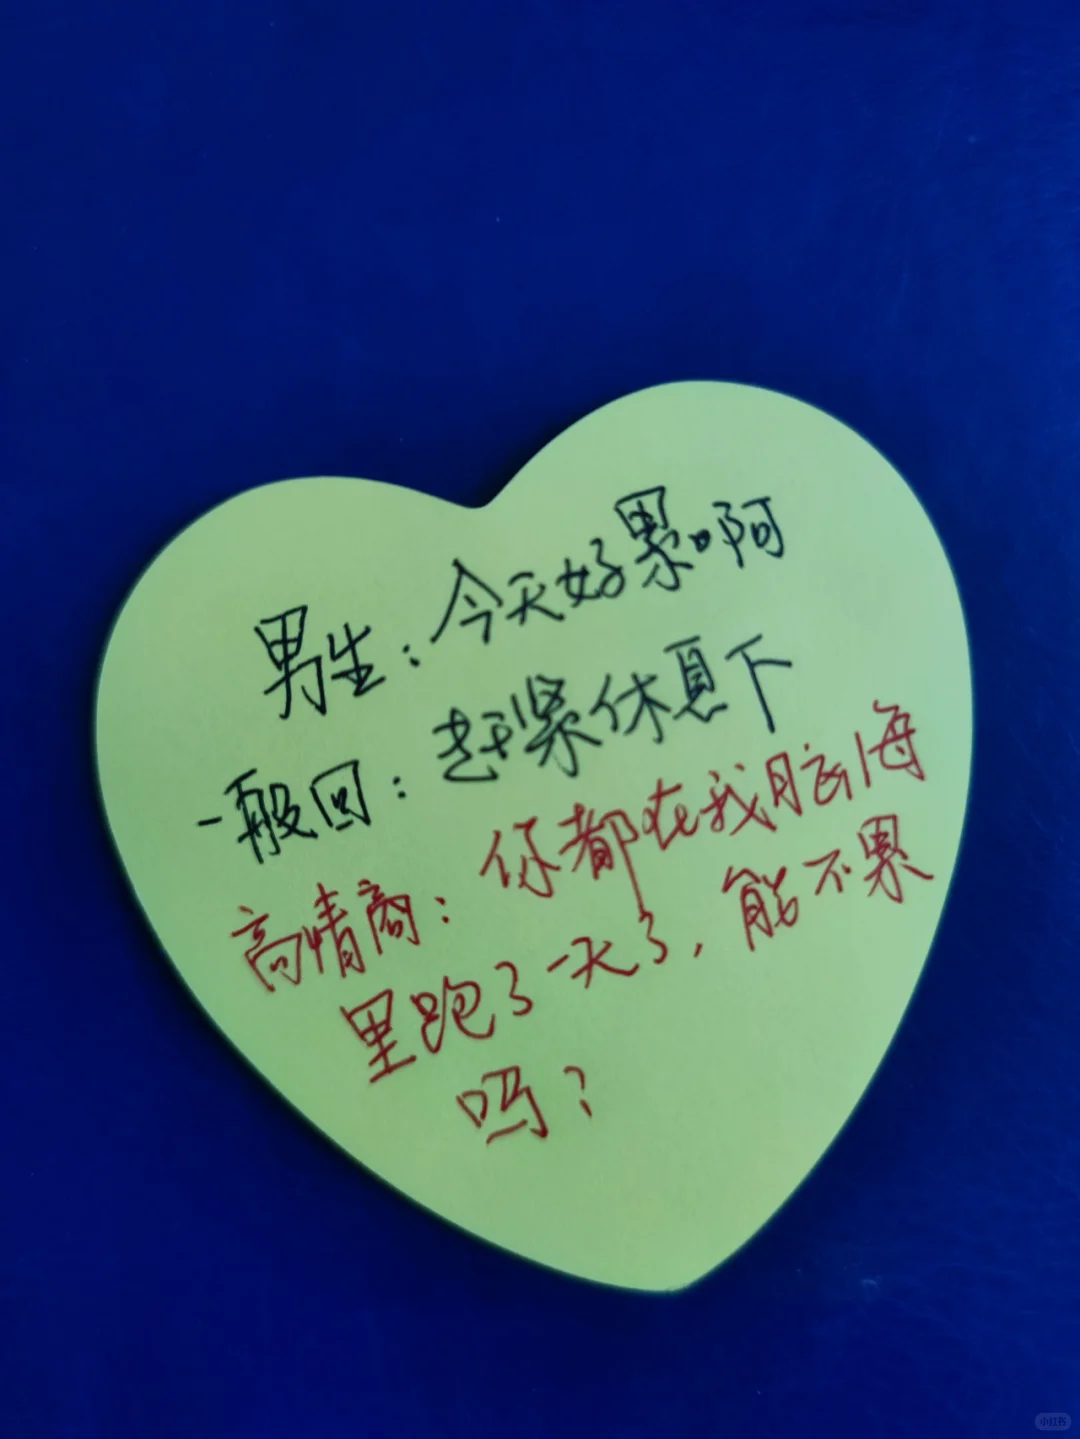 男生：今天好累啊
一般回：赶紧休息下
高情商：你都在我脑海
里跑了一天了，能不累
吗？
小红书